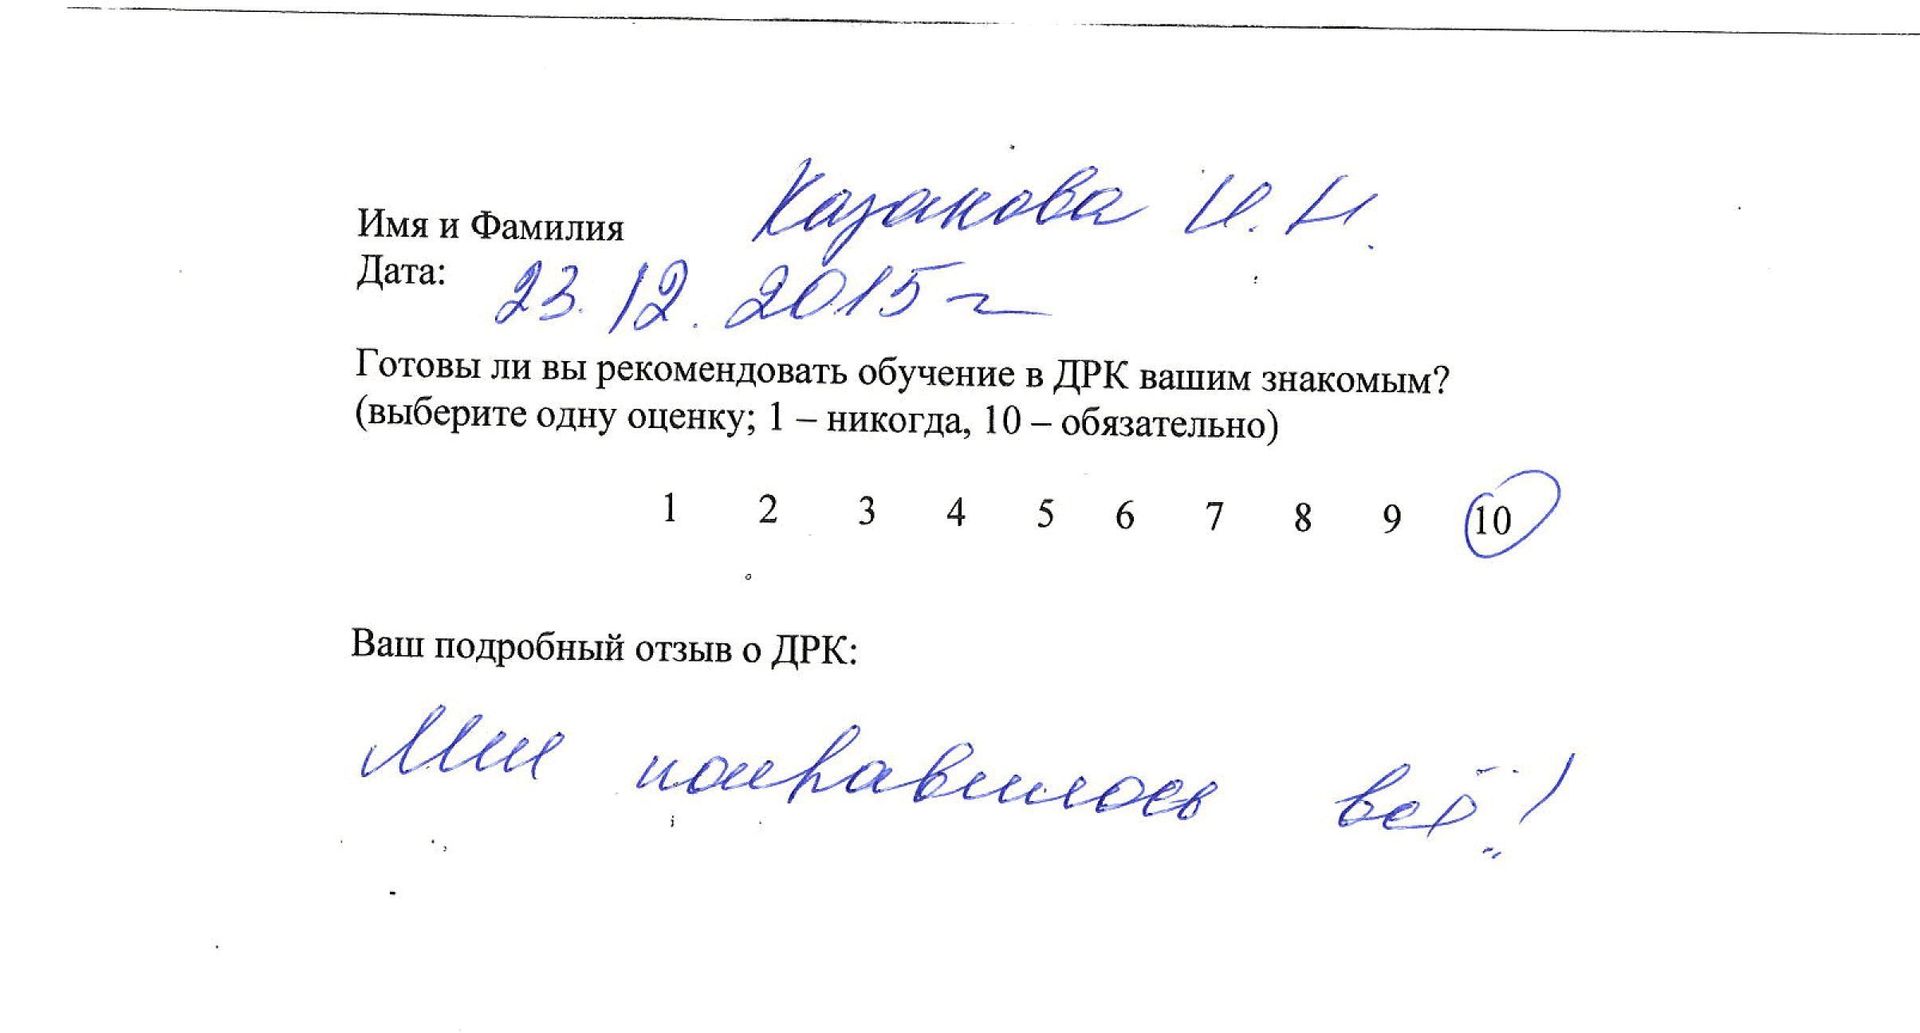 Имя и Фамилия Казакова И. Н.
Дата: 23.12.2015 г
Готовы ли вы рекомендовать обучение в ДРК вашим знакомым?
(выберите одну оценку; 1 – никогда, 10 – обязательно)
1 2 3 4 5 6 7 8 9 10
Ваш подробный отзыв о ДРК:
Мне понравилось всё!